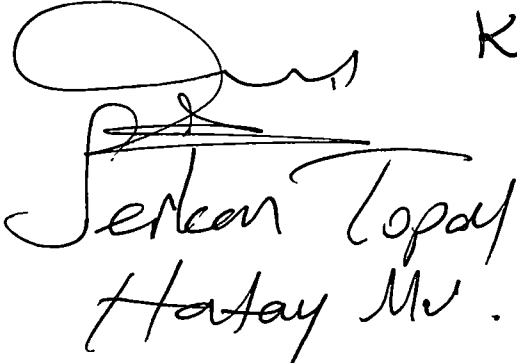 K
Serkan Topal
Hatay Mv.